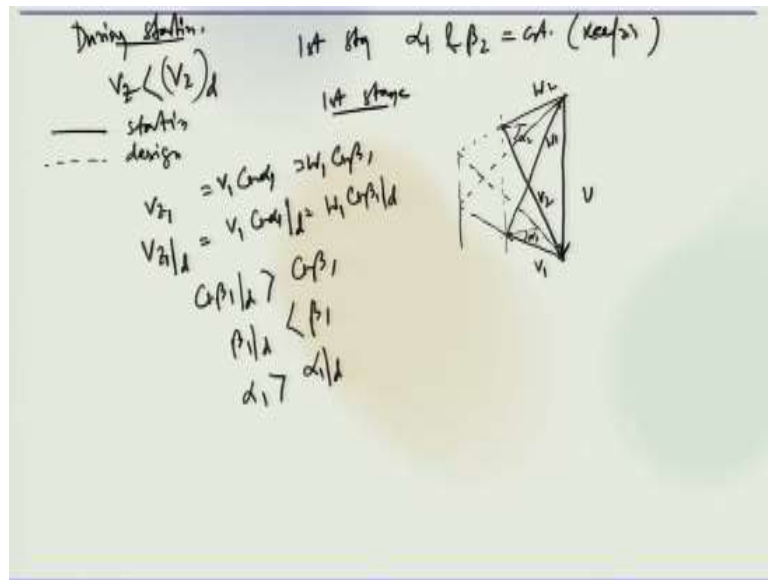 During startin.
1st stg α1 & β2 = cst.
Vz < (Vz)d
1st stage
startin
design
Vz1 = V1 Cosα1 = W1 Cosβ1
Vz1|d = V1 Cosα1|d = W1 Cosβ1|d
Cosβ1|d > Cosβ1
β1|d < β1
α1 > α1|d
W2
α2
W1
V2
U
α1
V1